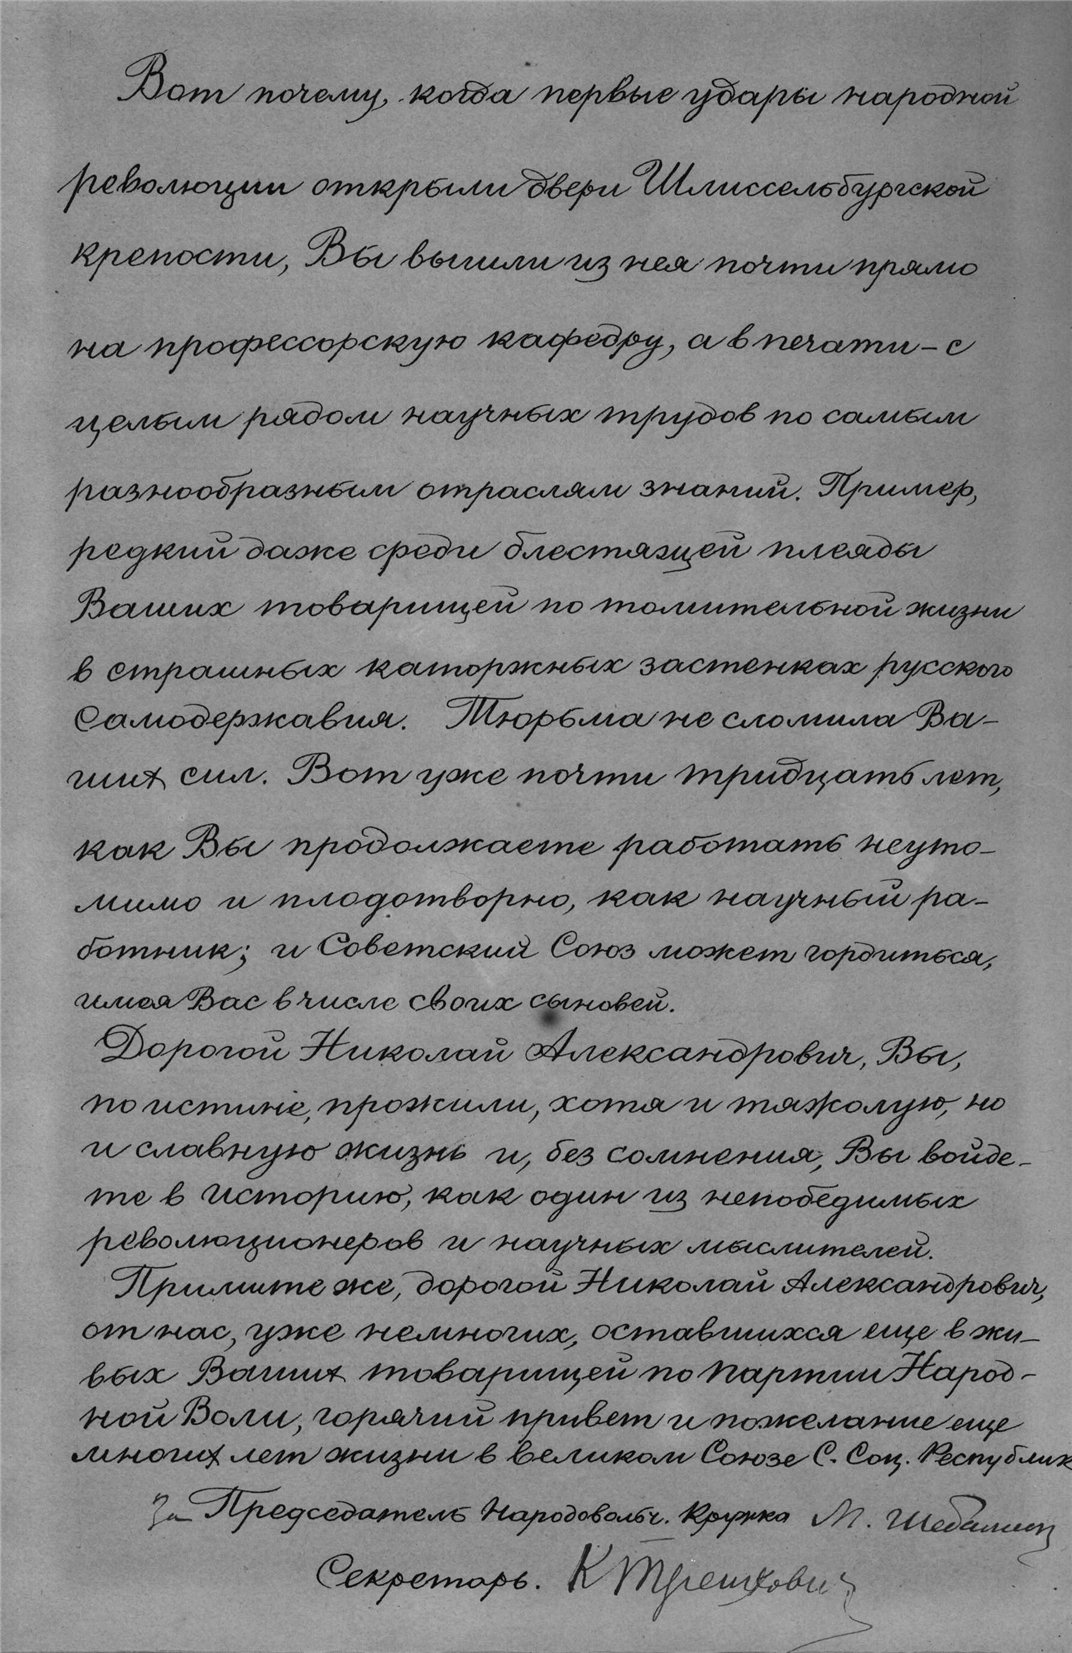 Вот почему, когда первые удары народной
революции открыли двери Шлиссельбургской
крепости, Вы вышли из нея почти прямо
на профессорскую кафедру, а в печати – с
целым рядом научных трудов по самым
разнообразным отраслям знаний. Пример,
редкий даже среди блестящей плеяды
Ваших товарищей по томительной жизни
в страшных каторжных застенках русского
Самодержавия. Тюрьма не сломила Ва-
ших сил. Вот уже почти тридцать лет,
как Вы продолжаете работать неуто-
мимо и плодотворно, как научный ра-
ботник; и Советский Союз может гордиться,
имея Вас в числе своих сыновей.
Дорогой Николай Александрович, Вы,
по истине, прожили, хотя и тяжолую, но
и славную жизнь и, без сомнения, Вы войде-
те в историю, как один из непобедимых
революционеров и научных мыслителей.
Примите же, дорогой Николай Александрович,
от нас, уже немногих, оставшихся еще в жи-
вых Ваших товарищей по партии Народ-
ной Воли, горячий привет и пожелание еще
многих лет жизни в великом Союзе С. Соц. Республик
За Председатель Народовольч. Кружка М. Шебалин
Секретарь.